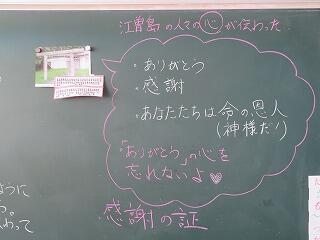 江曽島の人々の心が伝わった
・ありがとう
・感謝
・あなたたちは命の恩人
(神様だ!)
「ありがとう」の心を
忘れないよ♡
感謝の証
ように
って